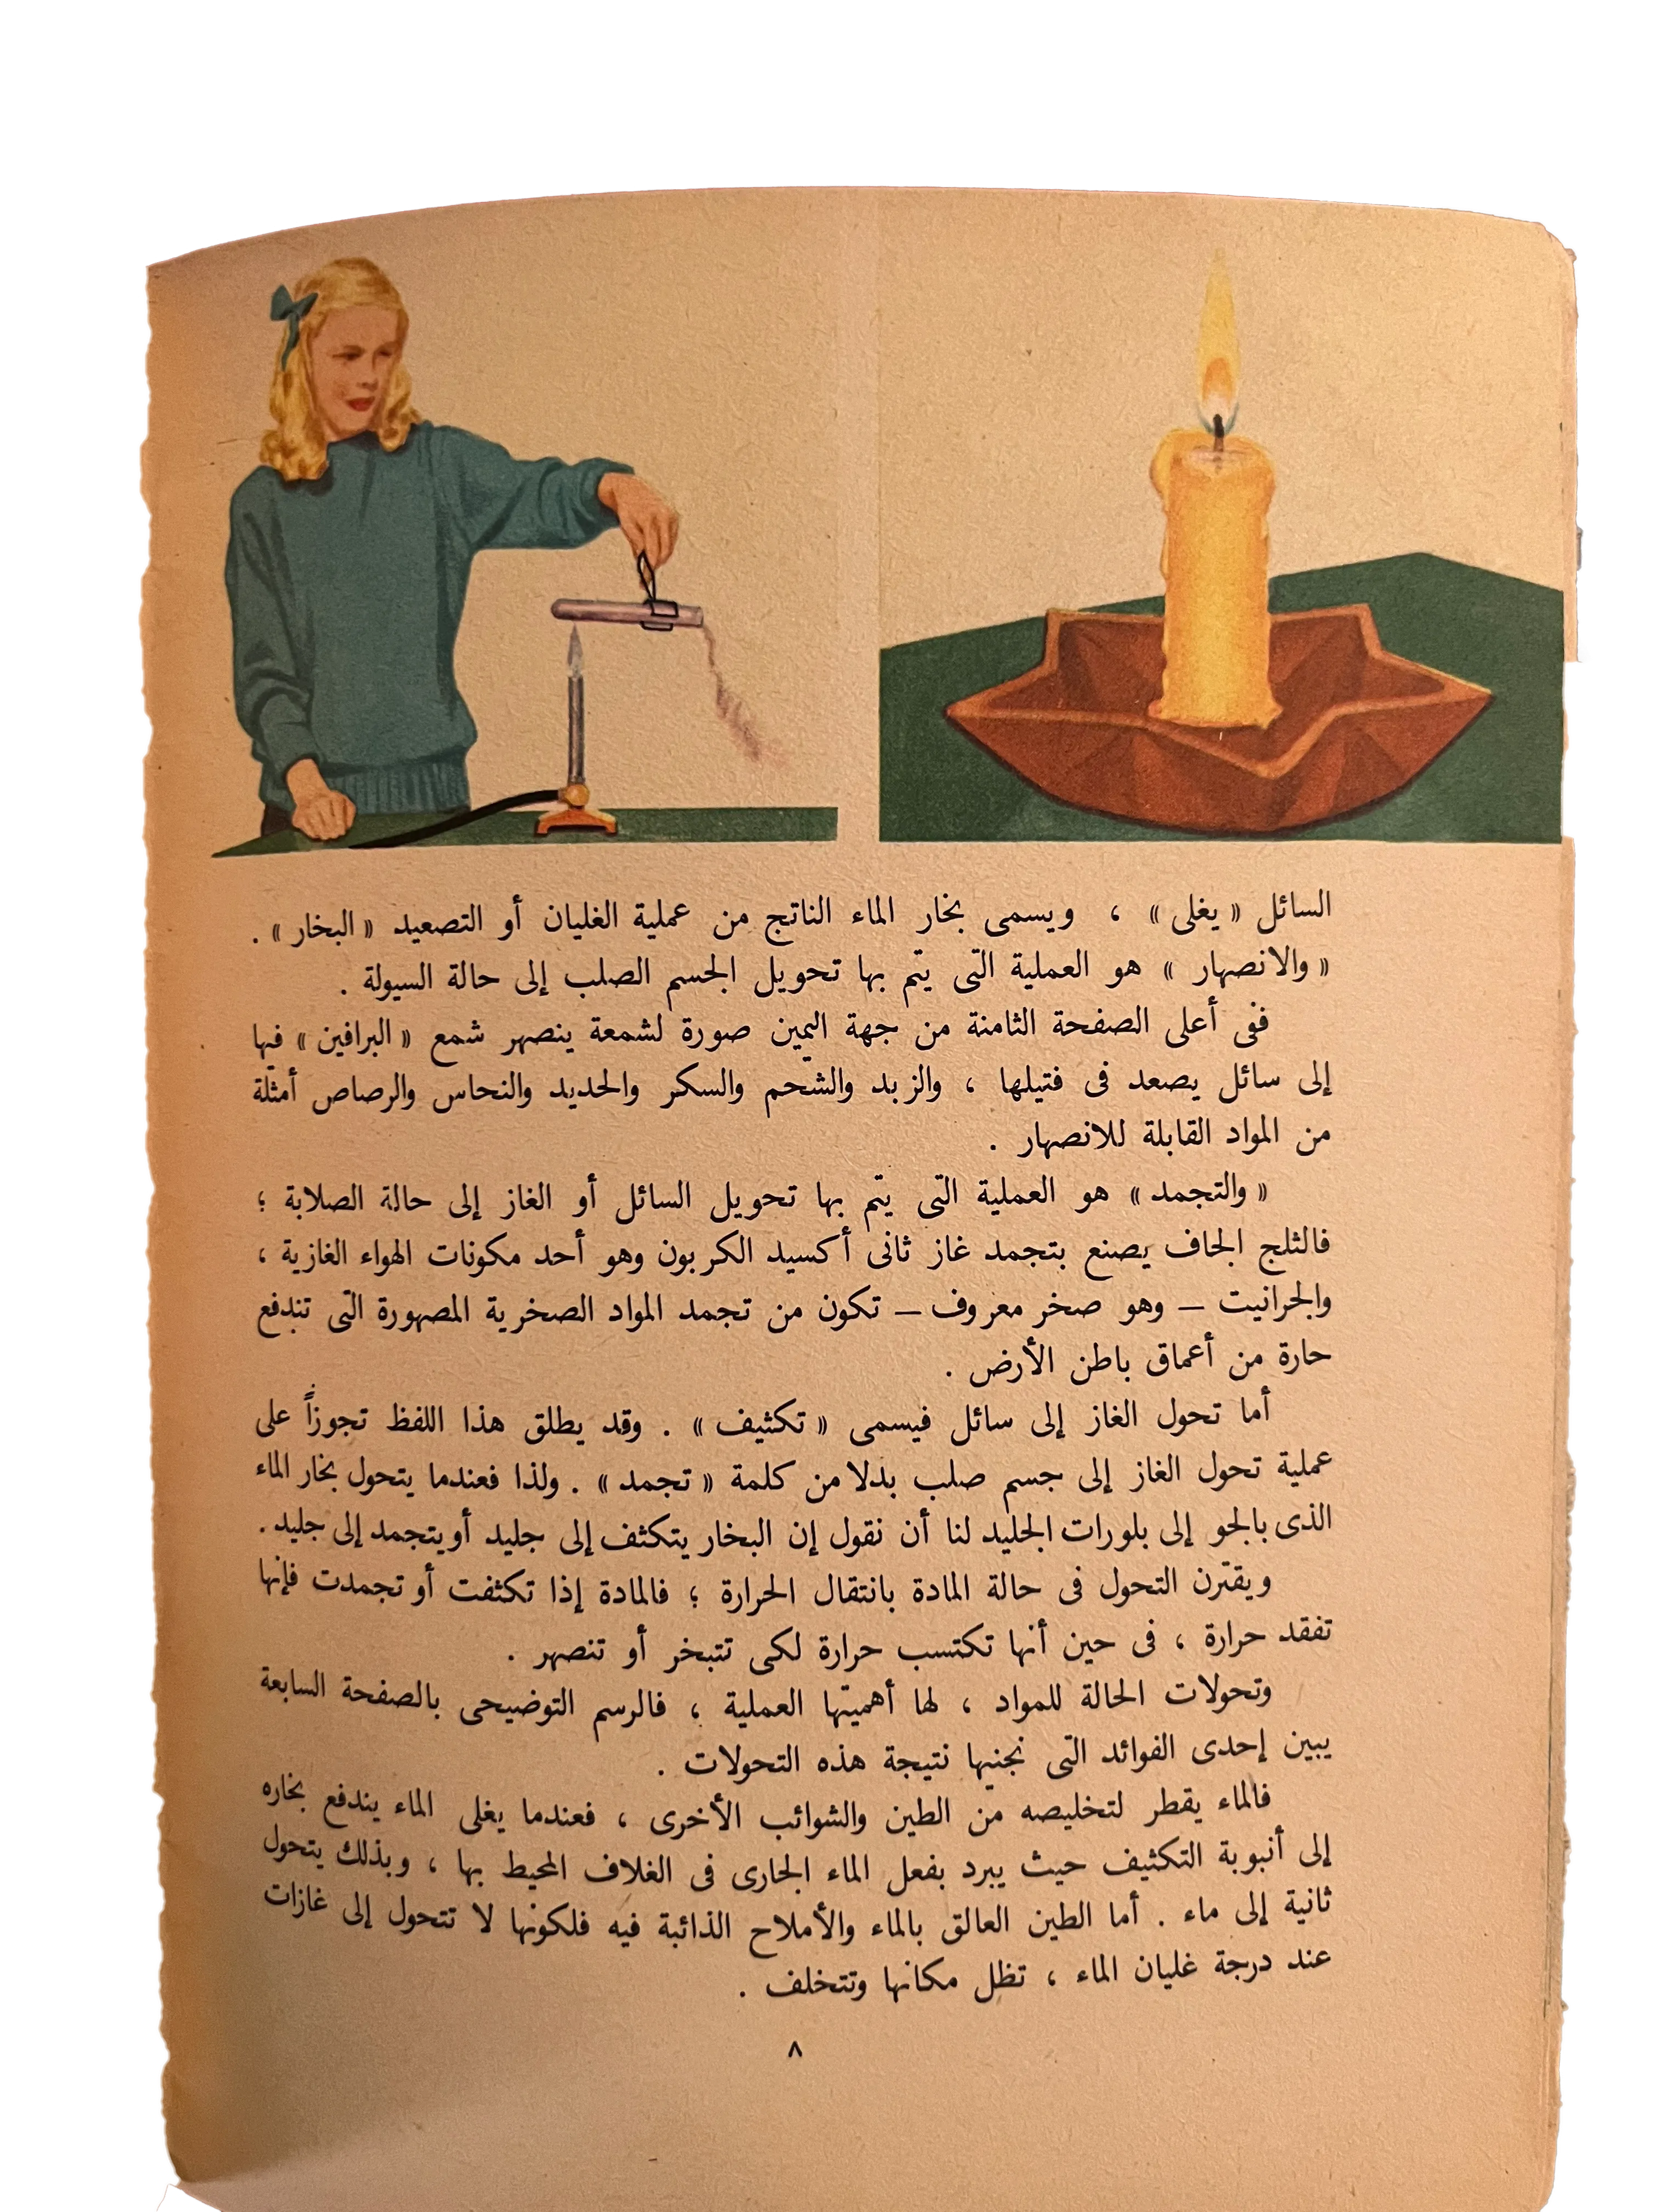 السائل « يغلى » ، ويسمى بخار الماء الناتج من عملية الغليان أو التصعيد « البخار » .
« والانصهار » هو العملية التى يتم بها تحويل الجسم الصلب إلى حالة السيولة .
ففى أعلى الصفحة الثامنة من جهة اليمين صورة لشمعة ينصهر شمع « البرافين » فيها
إلى سائل يصعد فى فتيلها ، والزبد والشحم والسكر والحديد والنحاس والرصاص أمثلة
من المواد القابلة للانصهار .
« والتجمد » هو العملية التى يتم بها تحويل السائل أو الغاز إلى حالة الصلابة ؛
فالثلج الجاف يصنع بتجمد غاز ثانى أكسيد الكربون وهو أحد مكونات الهواء الغازية ،
والجرانيت – وهو صخر معروف – تكون من تجمد المواد الصخرية المصهورة التى تندفع
حارة من أعماق باطن الأرض .
أما تحول الغاز إلى سائل فيسمى « تكثيف » . وقد يطلق هذا اللفظ تجوزاً على
عملية تحول الغاز إلى جسم صلب بدلا من كلمة « تجمد » . ولذا فعندما يتحول بخار الماء
الذى بالجو إلى بلورات الجليد لنا أن نقول إن البخار يتكثف إلى جليد أو يتجمد إلى جليد .
ويقترن التحول فى حالة المادة بانتقال الحرارة ؛ فالمادة إذا تكثفت أو تجمدت فإنها
تفقد حرارة ، فى حين أنها تكتسب حرارة لكى تتبخر أو تنصهر .
وتحولات الحالة للمواد ، لها أهميتها العملية ، فالرسم التوضيحى بالصفحة السابعة
يبين إحدى الفوائد التى نجنيها نتيجة هذه التحولات .
فالماء يقطر لتخليصه من الطين والشوائب الأخرى ، فعندما يغلى الماء يندفع بخاره
إلى أنبوبة التكثيف حيث يبرد بفعل الماء الجارى فى الغلاف المحيط بها ، وبذلك يتحول
ثانية إلى ماء . أما الطين العالق بالماء والأملاح الذائبة فيه فلكونها لا تتحول إلى غازات
عند درجة غليان الماء ، تظل مكانها وتتخلف .
٨